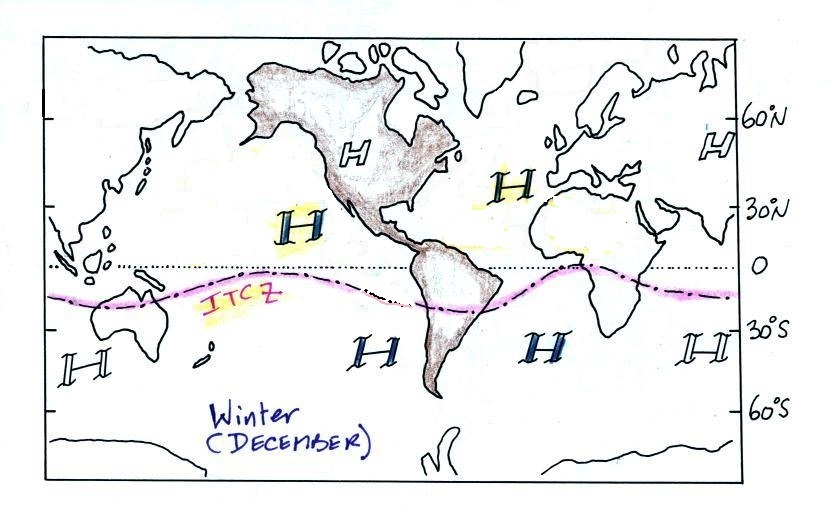 60°N
H
H
H
30°N
H
0
ITCZ
30°S
H
H
H
H
Winter
(DECEMBER)
60°S